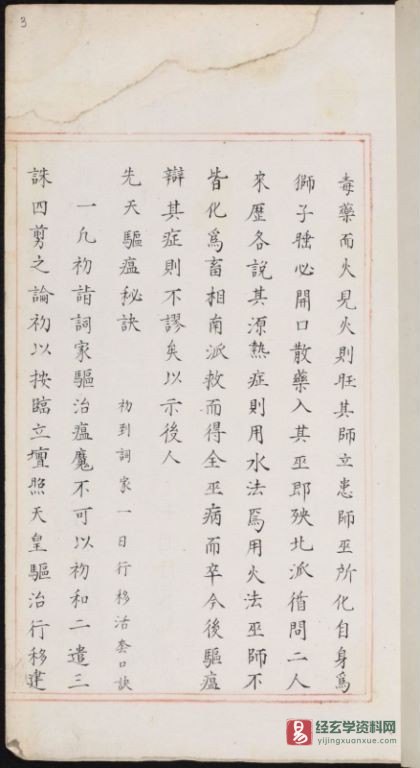 3
毒藥而火見火則旺其師立患師巫所化自身爲
獅子睡必開口散藥入其巫即殃北派循問二人
來歷各說其源熱症則用水法焉用火法巫師不
皆化爲畜相南派救而得全巫病而卒今後驅瘟
辯其症則不謬矣以示後人
先天驅瘟秘訣 初到詞家一日行移活套口訣
一凡初詣詞家驅治瘟魔不可以初和二遣三
誅四剪之論初以按臨立壇照天皇驅治行移建
易
经玄学资料网
yijingxuanxue.com